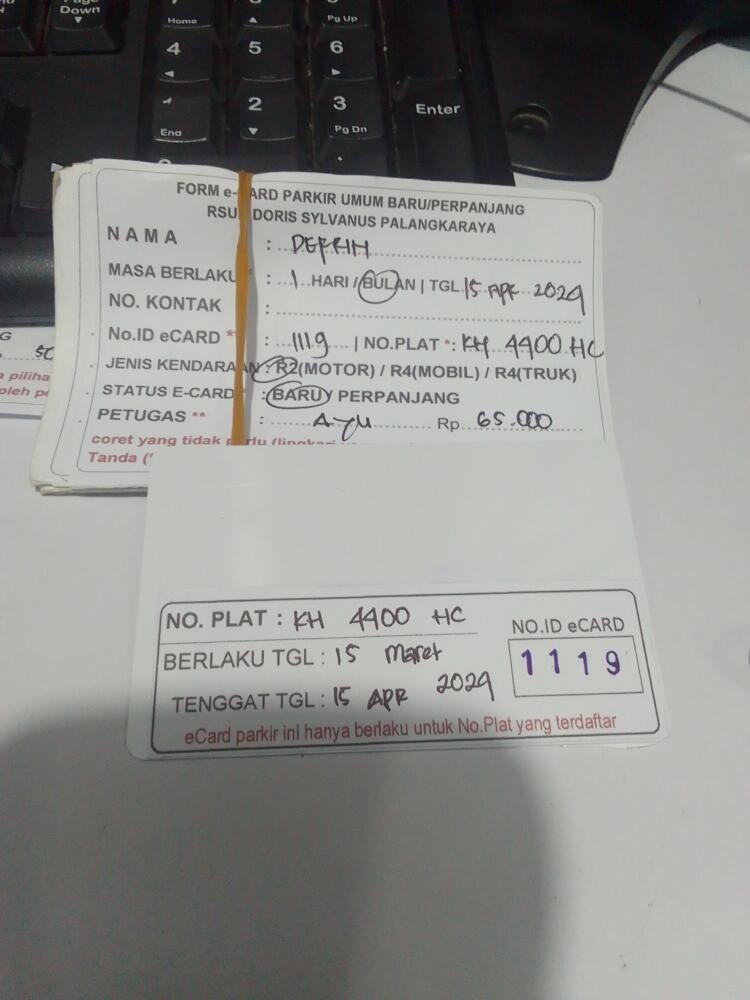 Page
Down
Home
Pg Up
4
5
6
End
2
3
Pg Dn
Enter
FORM e-CARD PARKIR UMUM BARU/PERPANJANG
RSUD DORIS SYLVANUS PALANGKARAYA
NAMA :
MASA BERLAKU : 1 HARI / BULAN | TGL 15 APR 2024
NO. KONTAK :
No.ID eCARD * : 1119 | NO.PLAT *: KH 4400 HC
JENIS KENDARAAN : R2(MOTOR) / R4(MOBIL) / R4(TRUK)
STATUS E-CARD : BARU/ PERPANJANG
PETUGAS ** : Ayu Rp 65.000
coret yang tidak perlu
Tanda
NO. PLAT : KH 4400 HC
BERLAKU TGL : 15 Maret
TENGGAT TGL : 15 APR 2024
NO.ID eCARD
1119
eCard parkir ini hanya berlaku untuk No.Plat yang terdaftar